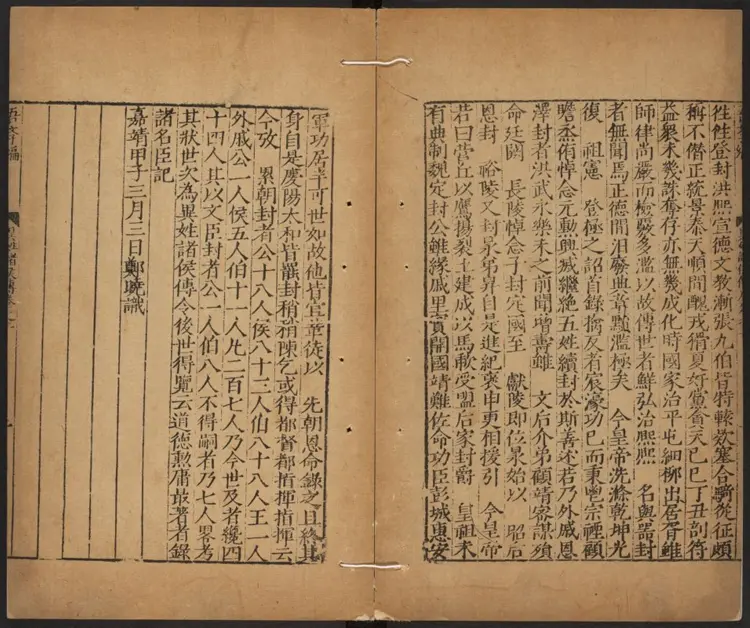 徃徃登封洪熙宣德文教漸張九伯皆特轅欵塞合騎從征頗
稱不僭正統景泰天順間醜戎猾夏奸黨貪天己巳丁丑剖符
益衆未幾誅奪存亦無幾成化時國家治平屯細柳出居胥雖
師律尚嚴而檢驗多濫以故傳世者鮮弘治熙熙 名與器封
者無聞焉正德間汨廢典章黷濫極矣 今皇帝洗滌乾坤光
復 祖憲 登極之詔首錄擒反者宸濠功已而秉鬯宗禋顧
瞻烝侑悼念元勳興滅繼絕五姓續封於斯善述若乃外戚恩
澤封者洪武永樂未之前聞增壽雖 文后介弟顧靖客謀殞
命廷闕 長陵悼念子封定國至 獻陵即位杲始以 昭后
恩封 裕陵又封杲弟昇自是進紀奕申更相援引 今皇帝
若曰營丘以鷹揚裂土建成以馬歃受盟后家封爵 皇祖未
有典制魏定封公雖緣戚里實開國靖難佐命功臣彭城惠安
軍功居半可世如故他皆宜華徒以 先朝恩命錄之且終其
身自是慶陽太和皆罷封稍稍陳乞或得都督都指揮指揮云
今攷 累朝封者公十八人侯八十三人伯八十八人王一人
外戚公一人侯五人伯十一人凡二百七人乃今世及者纔四
十四人其以文臣封者公一人伯八人不得嗣者乃七人畧考
其狀世次為異姓諸侯傳令後世得覽云道德勲庸最著者錄
諸名臣記
嘉靖甲子三月三日鄭曉識
吾學編